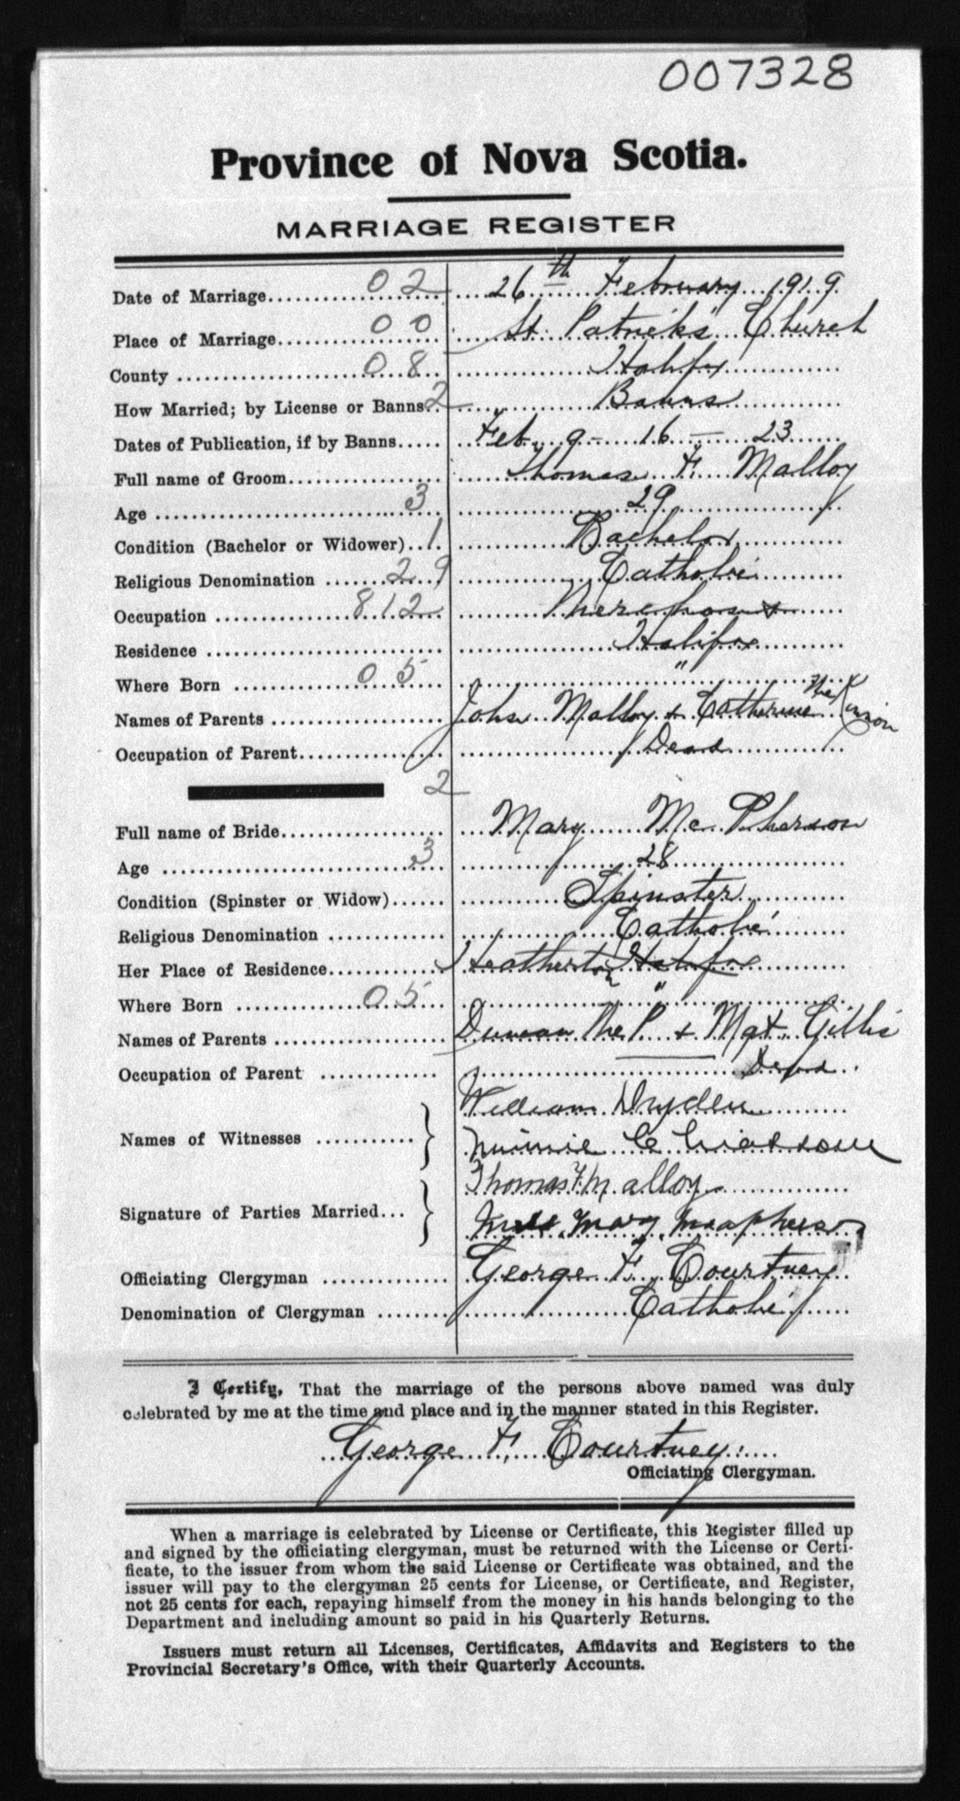 007328
Province of Nova Scotia.
MARRIAGE REGISTER
Date of Marriage 02 26th February 1919
Place of Marriage 00 St. Patrick's Church
County 08 Halifax
How Married; by License or Banns 2 Banns
Dates of Publication, if by Banns Feb. 9 - 16 - 23
Full name of Groom Thomas F. Malloy
Age 3 29
Condition (Bachelor or Widower) 1 Bachelor
Religious Denomination 29 Catholic
Occupation 812
Residence Halifax
Where Born 05 "
Names of Parents John Malloy & Catherine McKinnon
Occupation of Parent Dead
2
Full name of Bride Mary McPherson
Age 3 28
Condition (Spinster or Widow) Spinster
Religious Denomination Catholic
Her Place of Residence Heatherton Halifax
Where Born 05 "
Names of Parents Duncan McP. & Mgt. Gillis
Occupation of Parent Dead
William Dryden
Names of Witnesses Minnie
Thomas F Malloy
Signature of Parties Married Miss Mary
Officiating Clergyman George F. Courtney
Denomination of Clergyman Catholic
I Certify, That the marriage of the persons above named was duly
celebrated by me at the time and place and in the manner stated in this Register.
George F. Courtney
Officiating Clergyman.
When a marriage is celebrated by License or Certificate, this Register filled up
and signed by the officiating clergyman, must be returned with the License or Certi-
ficate, to the issuer from whom the said License or Certificate was obtained, and the
issuer will pay to the clergyman 25 cents for License, or Certificate, and Register,
not 25 cents for each, repaying himself from the money in his hands belonging to the
Department and including amount so paid in his Quarterly Returns.
Issuers must return all Licenses, Certificates, Affidavits and Registers to the
Provincial Secretary's Office, with their Quarterly Accounts.